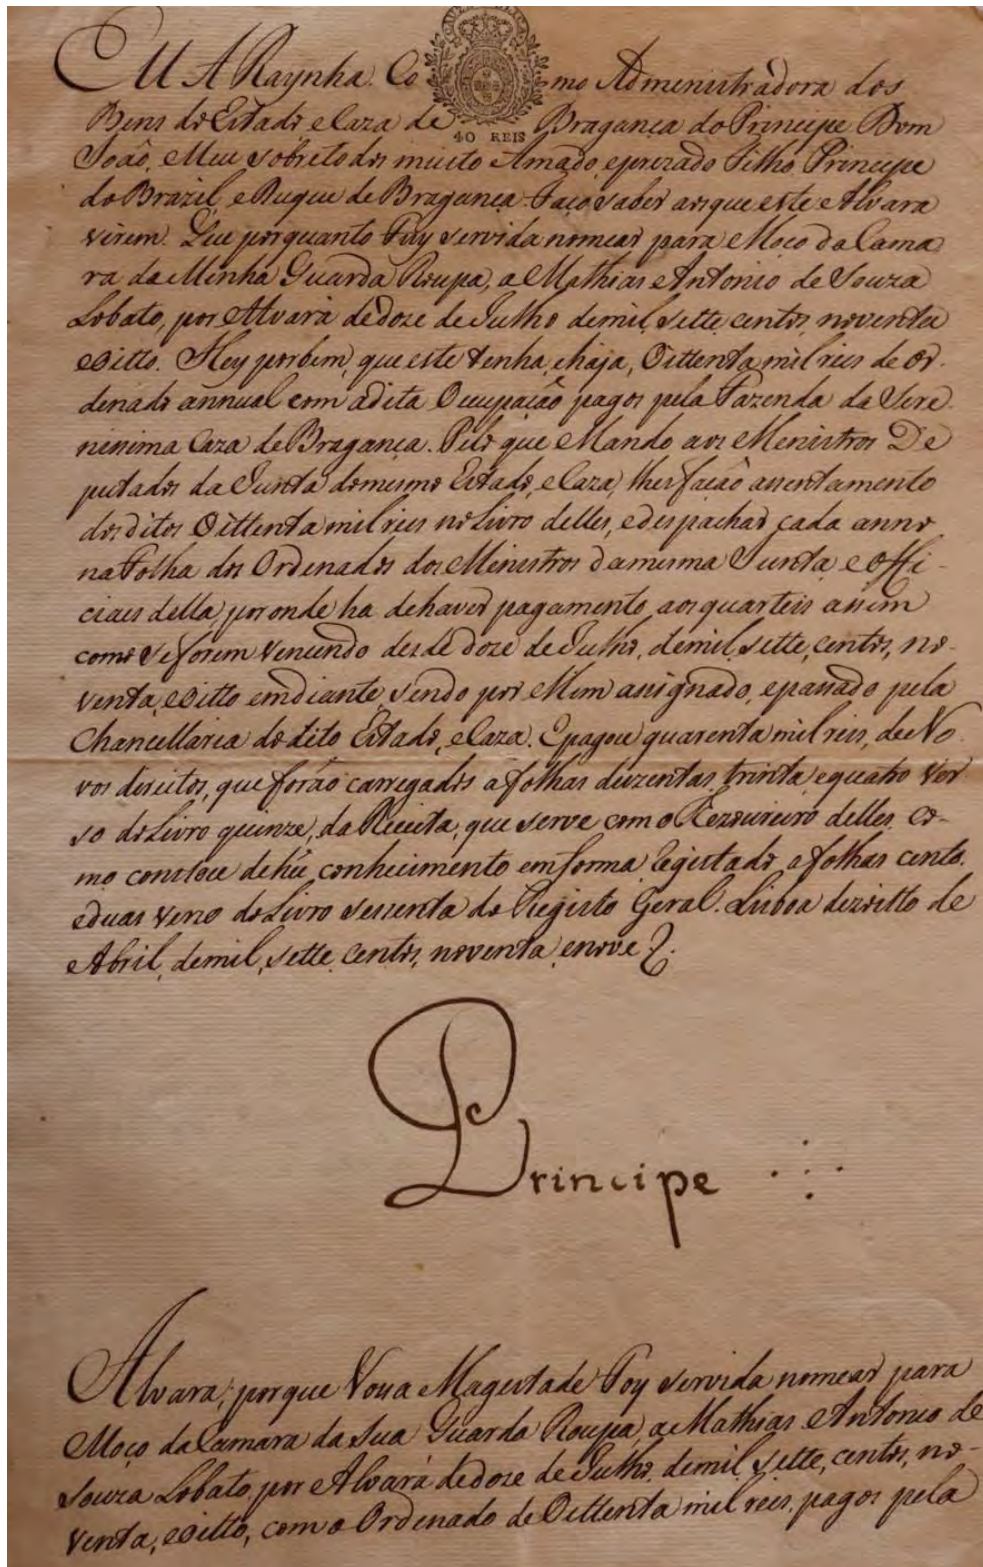 EU A Raynha. Co mo Administradora dos
40 REIS
Bens do Estado e Caza de Bragança do Principe Dom
João, Meu sobretodos muito Amado, e prezado Filho, Principe
do Brazil, e Duque de Bragança. Faço saber aos que este Alvara
virem. Que porquanto Fuy servida nomear para Moço da Cama
ra da Minha Guarda Roupa, a Mathias Antonio de Souza
Lobato, por Alvará de doze de Julho de mil, sette, centos, noventa
e oitto. Hey por bem, que este tenha, e haja, Oittenta mil reis de Or-
denado annual com a dita Ocupação pagos pela Fazenda da Sere-
nissima Caza de Bragança. Pelo que Mando aos Menistros De
putados da Junta do mesmo Estado, e Caza, lhes fação assentamento
dos ditos Oittenta mil reis no Livro delles, e despachar cada anno
na Folha dos Ordenados dos Menistros da mesma Junta e Offi-
ciaes della, por onde ha de haver pagamento aos quarteis assim
como se forem vencendo desde doze de Julho, de mil, sette, centos, no-
venta, e oitto em diante, sendo por Mim assignado, e passado pela
Chancellaria do dito Estado, e Caza. E pagou quarenta mil reis, de No
vos direitos, que forão carregados a folhas duzentas, trinta, e quatro ver
so do Livro quinze, da Receita, que serve com o Thezoureiro delles, co-
mo constou de hũ conhecimento em forma registado a folhas cento,
e duas verso do Livro sessenta do Registo Geral. Lisboa dezoitto de
Abril, de mil, sette, centos, noventa, e nove
Principe
Alvara, porque Vossa Magestade Foy servida nomear para
Moço da Camara da Sua Guarda Roupa, a Mathias Antonio de
Souza Lobato, por Alvará de doze de Julho, de mil, sette, centos, no-
venta, e oitto, com o Ordenado de Oittenta mil reis, pagos pela